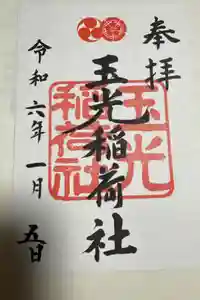 奉拝
玉光稲荷社
玉光
稲荷社
令和六年一月五日